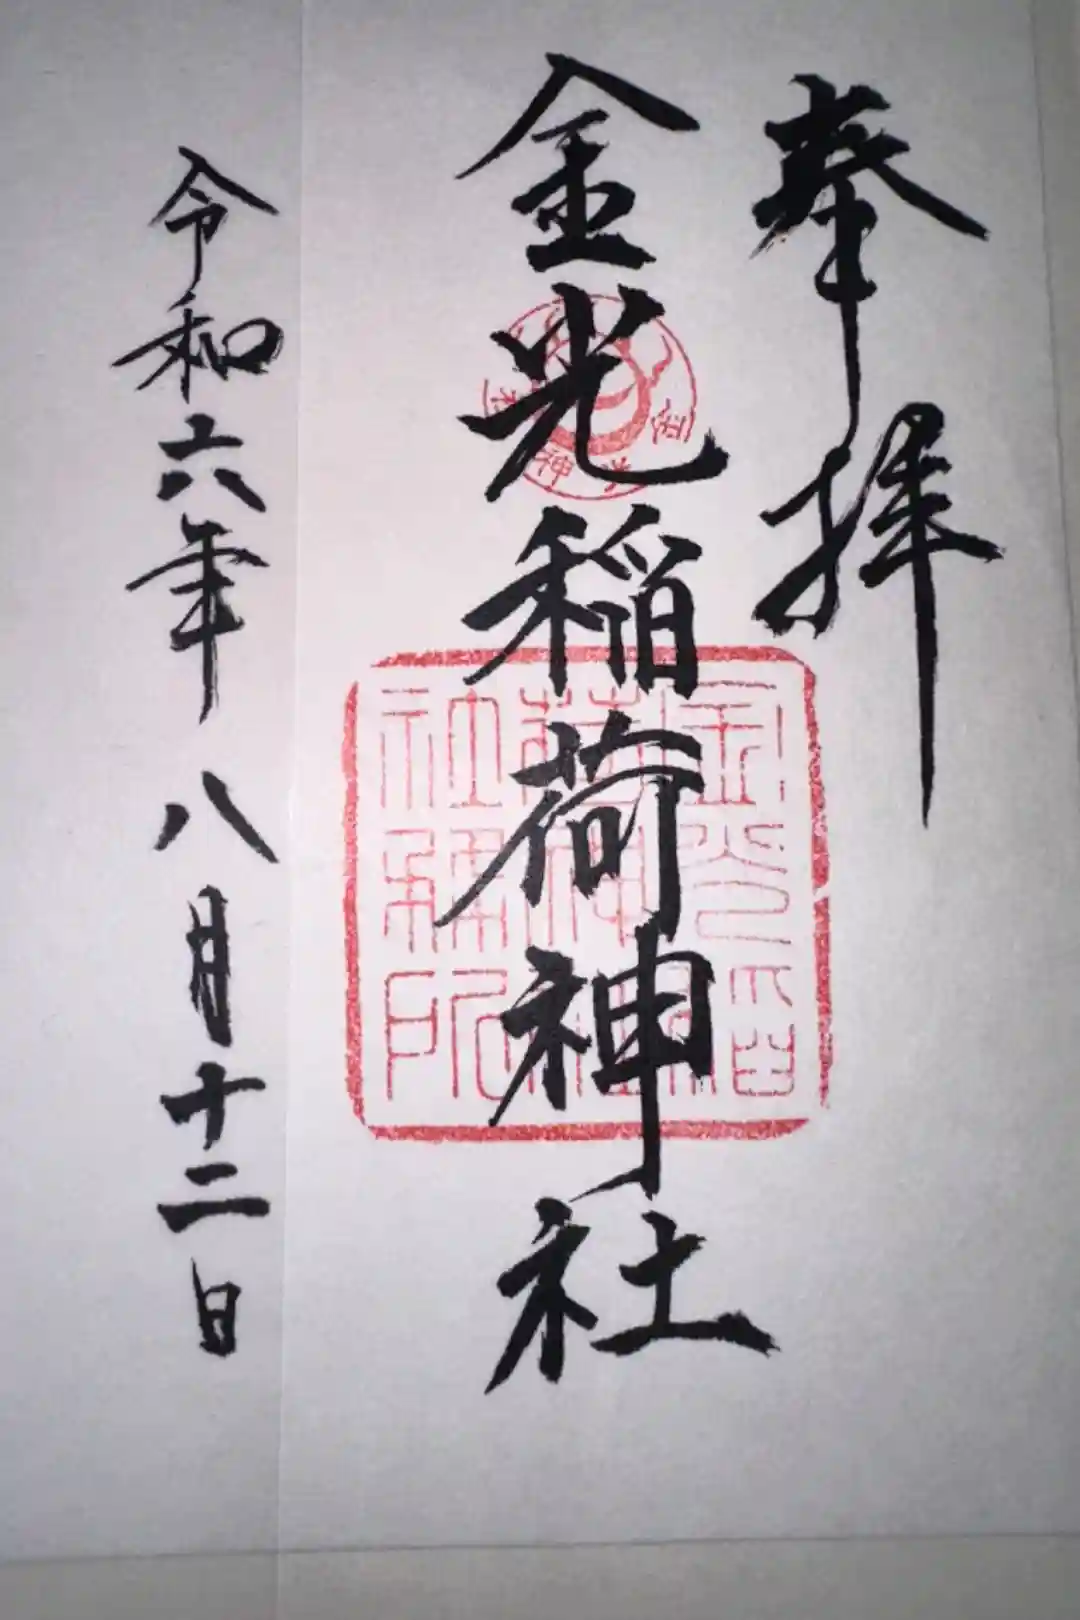 奉拝
金光稲荷神社
金光稲荷神社務所
令和六年八月十二日